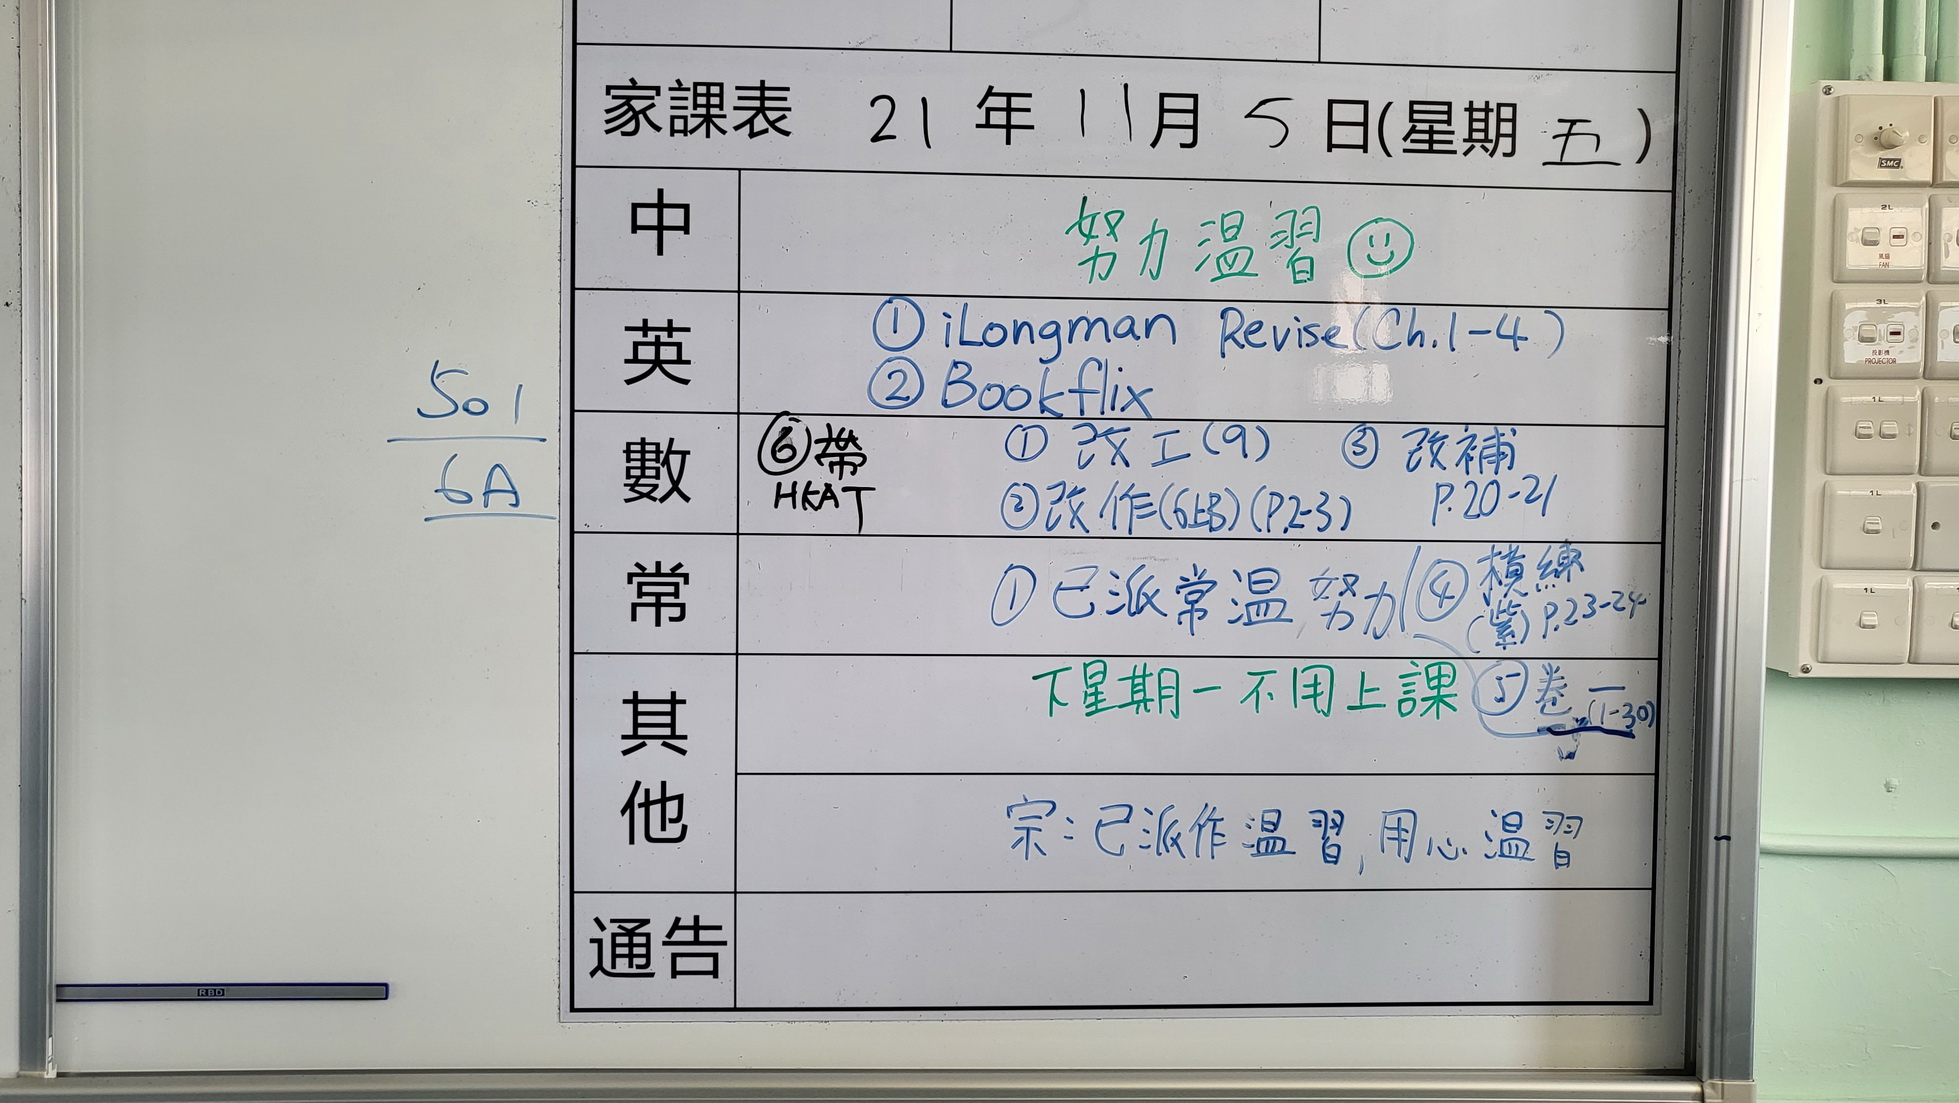 家課表 21年11月5日(星期五)
中 努力温習
英 ① iLongman Revise (Ch.1-4)
② Bookflix
501
6A
數 ⑥帶 ① 改工(9) ③ 改補
HKAT ②改作(6上B)(P.2-3) P.20-21
常 ① 已派常温 努力 ④ 模練
(紫) P.23-24
其他 下星期一不用上課 ⑤ 卷一 (1-30)
宗：已派作温習,用心温習
通告
RBD
SMC
2L
風扇
FAN
3L
投影機
PROJECTOR
1L
1L
1L